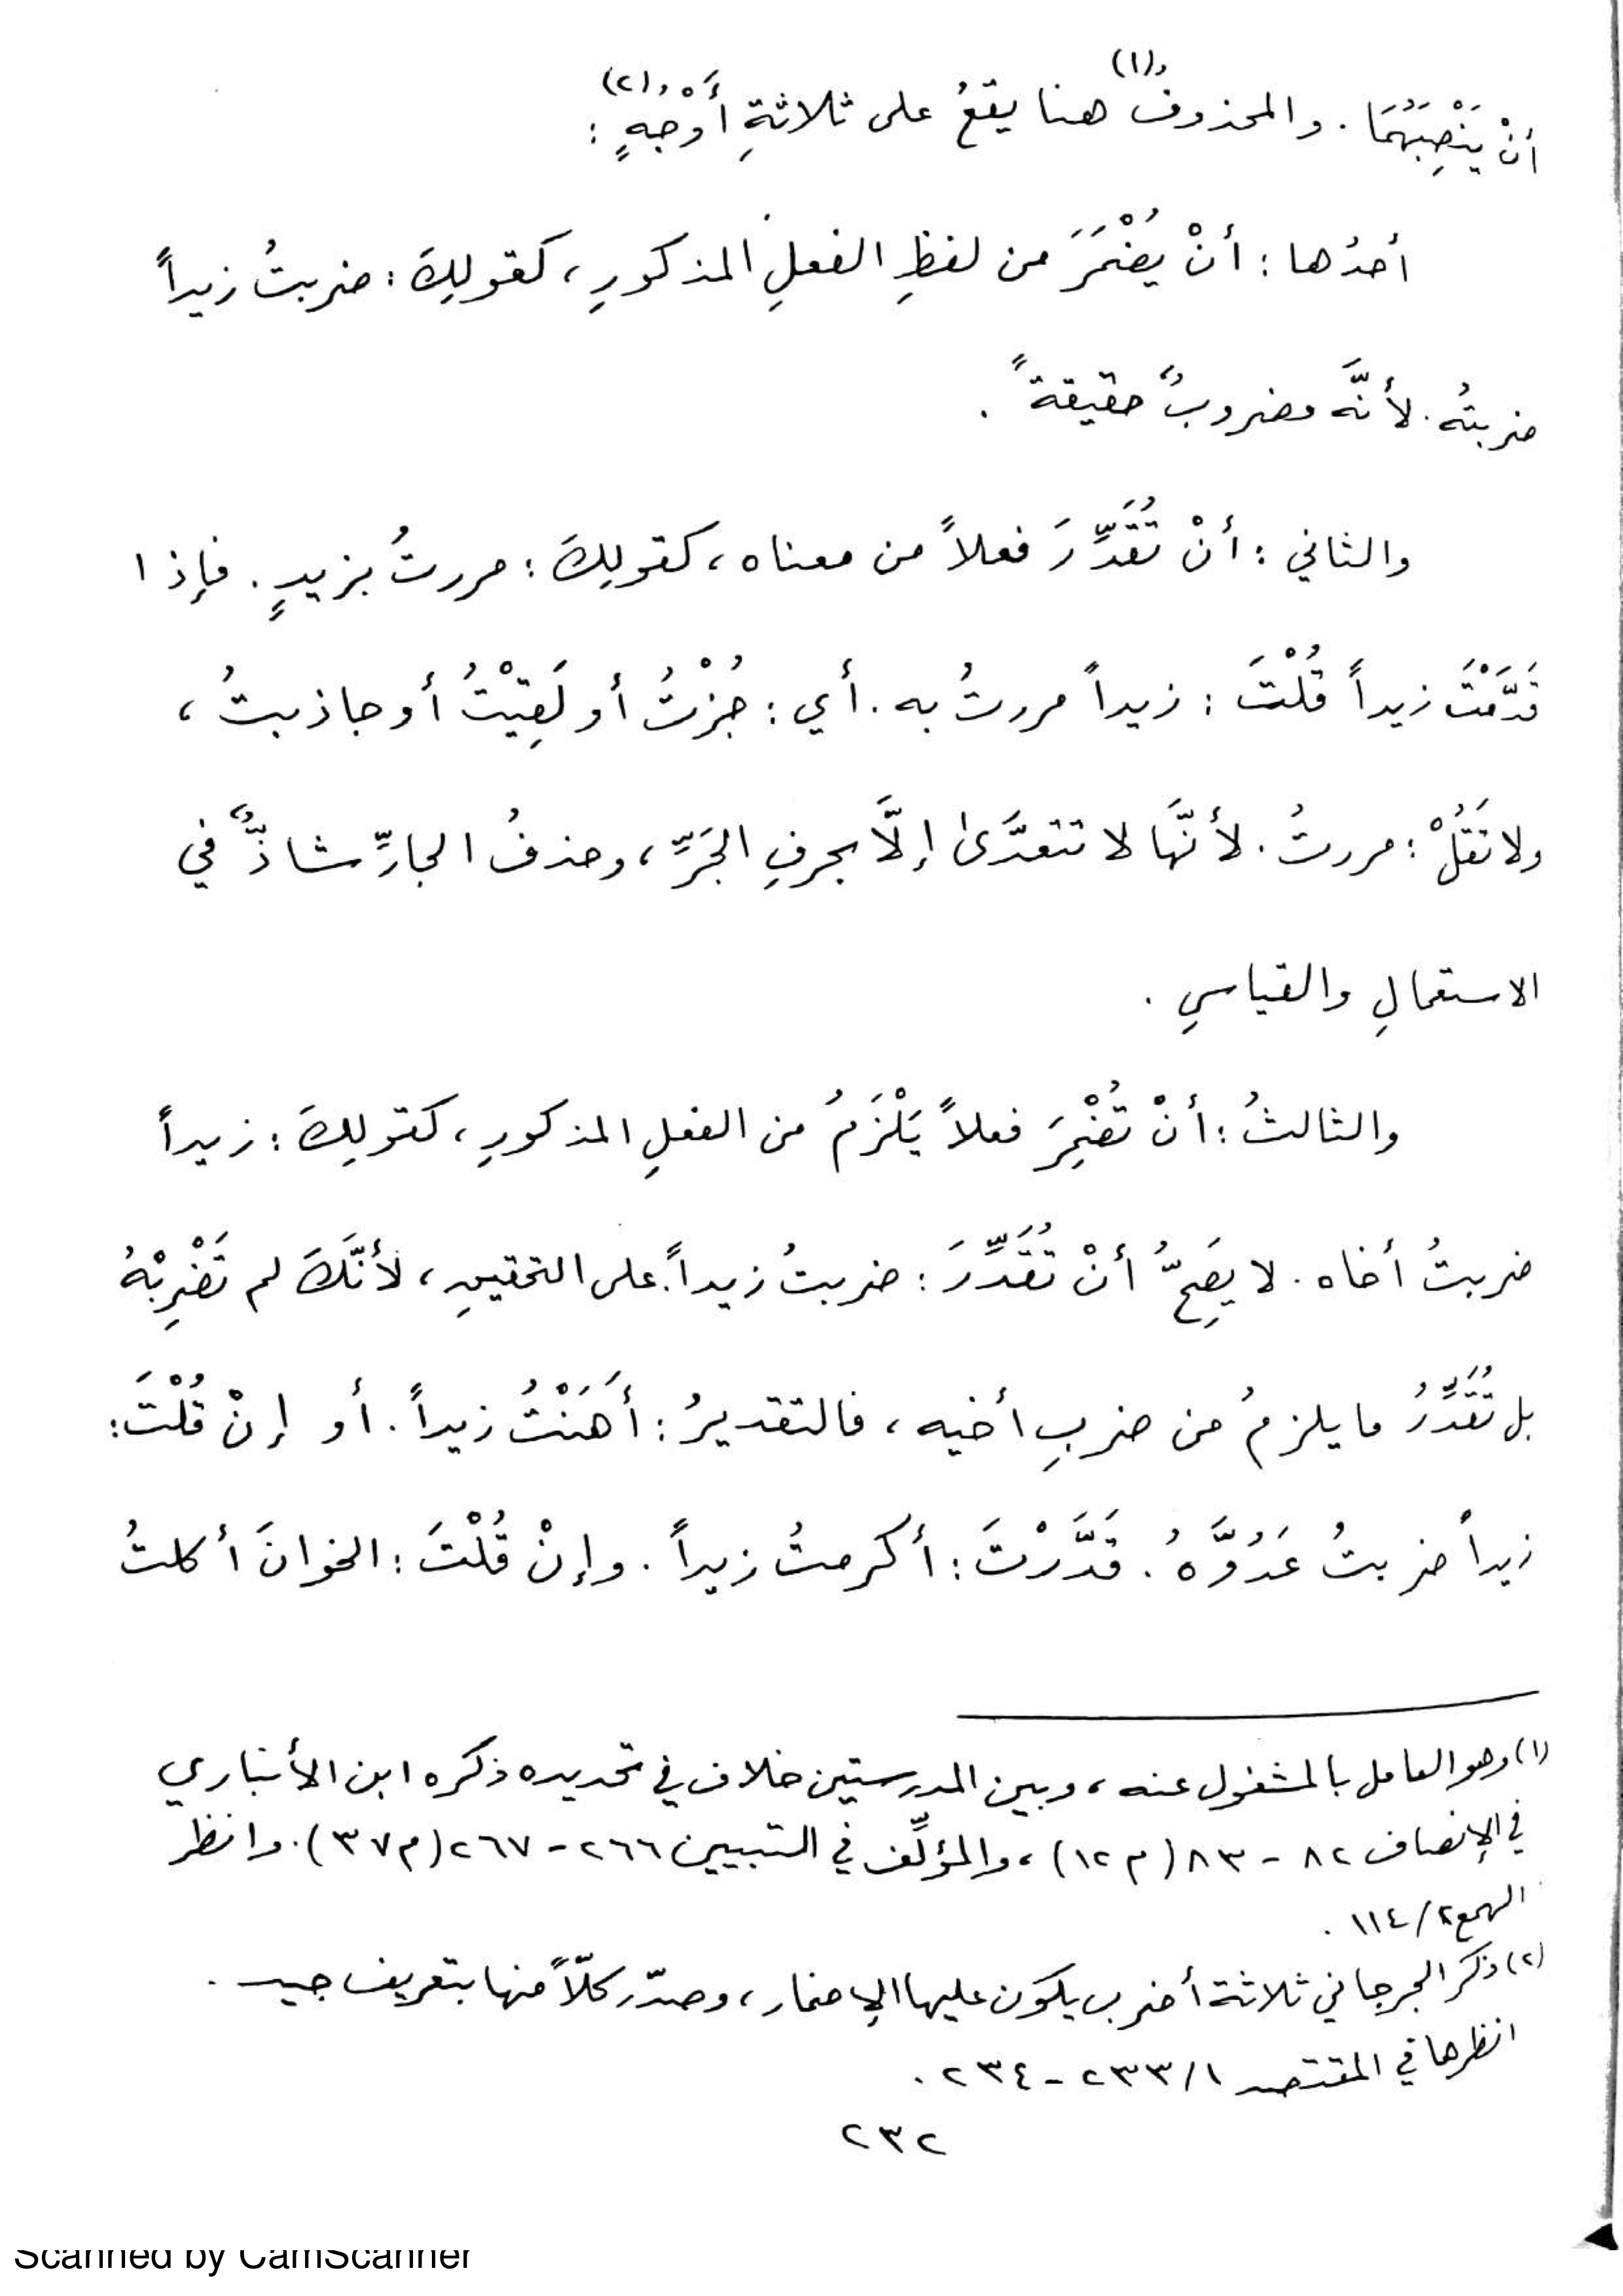 أنْ يَنْصِبَهُمَا . والمحذوفُ(١) هنا يقعُ على ثلاثةِ أَوْجُهٍ(٢) :
أحدُها : أنْ يُضْمَرَ من لفظِ الفعلِ المذكورِ ، كقولِكَ : ضربتُ زيداً
ضربتُه . لأنَّه مضروبٌ حقيقةً .
والثاني : أنْ تُقَدِّرَ فعلاً من معناه ، كقولِكَ : مررتُ بزيدٍ . فإذا
قَدَّمْتَ زيداً قُلْتَ : زيداً مررتُ به . أي : جُزْتُ أو لَقِيْتُ أو جاذبتُ ،
ولا تَقُلْ : مررتُ . لأنَّها لا تتعدَّىٰ إلَّا بحرفِ الجَرِّ ، وحذفُ الجارِّ شاذٌّ في
الاستعمالِ والقياسِ .
والثالثُ : أنْ تُضْمِرَ فعلاً يَلْزَمُ من الفعلِ المذكورِ ، كقولِكَ : زيداً
ضربتُ أخاه . لا يصَحُّ أنْ تُقَدِّرَ : ضربتُ زيداً . على التحقيقِ ، لأنَّكَ لم تَضْرِبْهُ
بل تُقَدِّرُ ما يلزمُ من ضربِ أخيه ، فالتقديرُ : أَهَنْتُ زيداً . أو إنْ قُلْتَ :
زيداً ضربتُ عَدُوَّهُ . قَدَّرْتَ : أكرمتُ زيداً . وإنْ قُلْتَ : الخوانَ أكلتُ
(١) وهو العامل بالمشغول عنه ، وبين المدرستين خلاف في تحديده ذكره ابن الأنباري
في الإنصاف ٨٢ - ٨٣ (م ١٢) ، والمؤلِّف في التبيين ٢٦٦ - ٢٦٧ (م ٣٧) . وانظر
الهمع ٢/١١٤ .
(٢) ذكر الجرجاني ثلاثة أضرب يكون عليها الإضمار ، وصدّر كلّاً منها بتعريف جيد .
انظرها في المقتصد ١/٢٣٣ - ٢٣٤ .
٢٣٢
Scanned by CamScanner